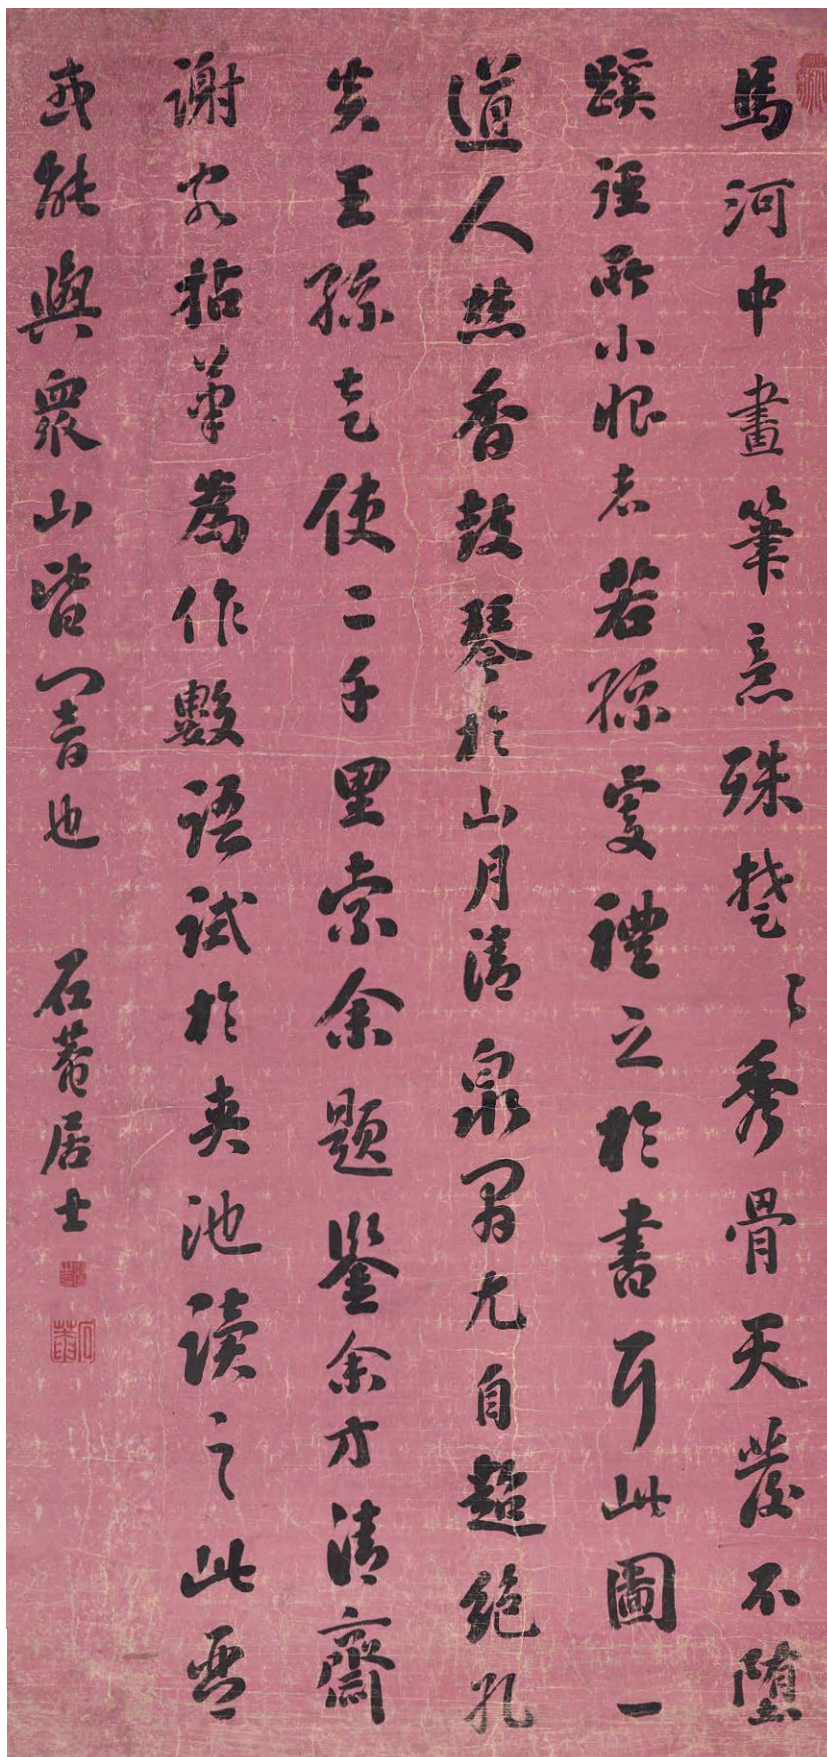 馬河中畫筆意殊楚〻秀骨天發不堕
蹊徑所小恨者若孫虔禮之於書耳此圖一
道人焚香鼓琴於山月清泉間尤自超絶孔
炎王孫走使二千里索余題鑒余方清齋
謝客拈筆為作數語試於夾池讀之此
或能與衆山皆響也
石菴居士
石菴